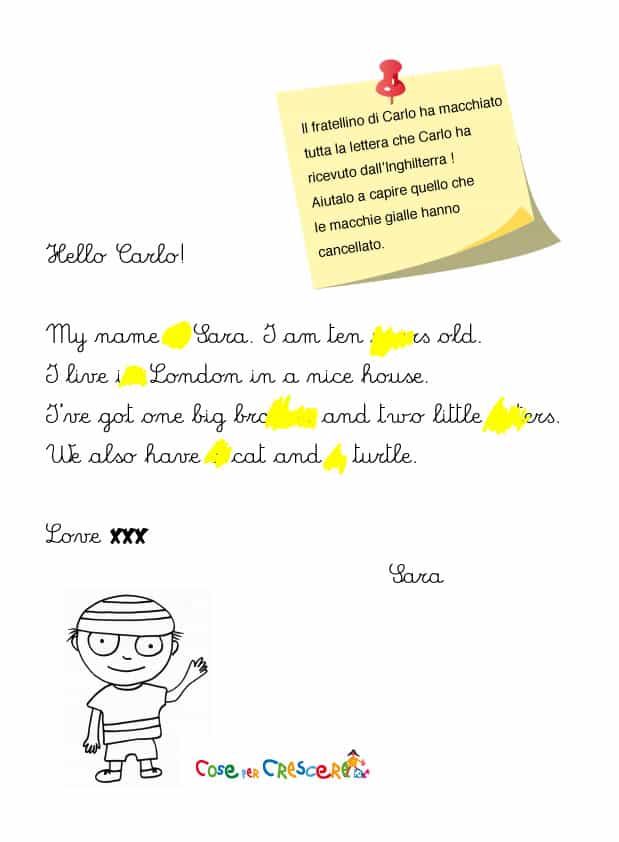 Il fratellino di Carlo ha macchiato
tutta la lettera che Carlo ha
ricevuto dall'Inghilterra !
Aiutalo a capire quello che
le macchie gialle hanno
cancellato.
Hello Carlo!
My name Sara. I am ten old.
I live London in a nice house.
I've got one big and two little
We also have cat and turtle.
Love xxx
Sara
COSE PER CRESCERE